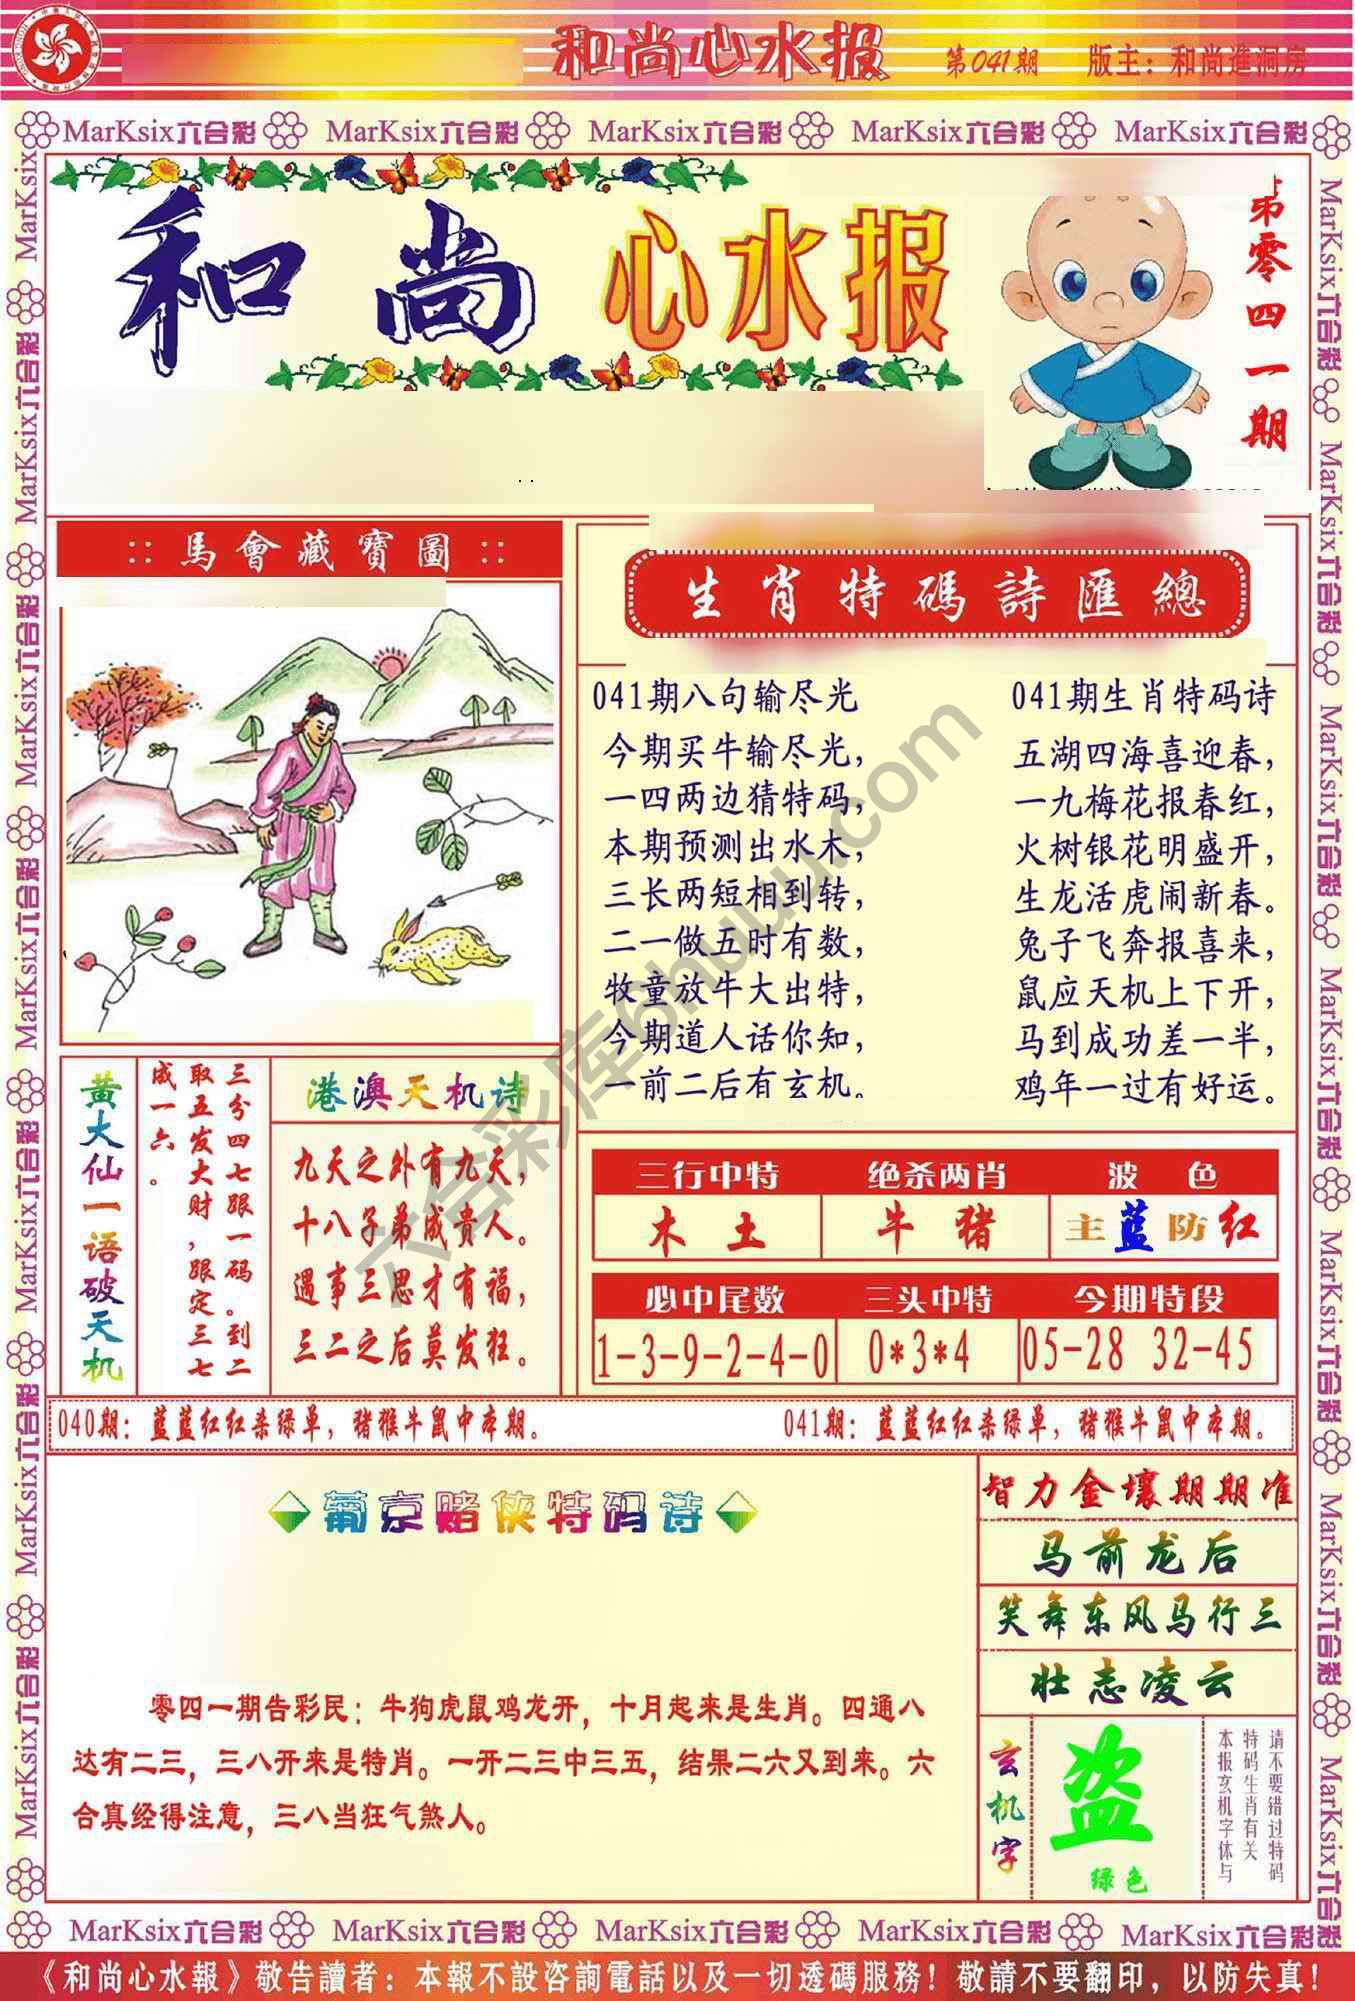 和尚心水报
第041期
版主：和尚進洞房
MarKsix六合彩 MarKsix六合彩 MarKsix六合彩 MarKsix六合彩 MarKsix六合彩
和尚心水报
第零四一期
::馬會藏寶圖::
生肖特碼詩匯總
041期八句输尽光
今期买牛输尽光，
一四两边猜特码，
本期预测出水木，
三长两短相到转，
二一做五时有数，
牧童放牛大出特，
今期道人话你知，
一前二后有玄机。
041期生肖特码诗
五湖四海喜迎春，
一九梅花报春红，
火树银花明盛开，
生龙活虎闹新春。
兔子飞奔报喜来，
鼠应天机上下开，
马到成功差一半，
鸡年一过有好运。
黄大仙一语破天机
三分四七跟一码。到二
取五发大财，跟定三七
成一六。
港澳天机诗
九天之外有九天，
十八子弟成贵人。
遇事三思才有福，
三二之后莫发狂。
三行中特 绝杀两肖 波 色
木 土 牛 猪 主蓝防红
必中尾数 三头中特 今期特段
1-3-9-2-4-0 0*3*4 05-28 32-45
040期：蓝蓝红红杀绿单，猪猴牛鼠中本期。
041期：蓝蓝红红杀绿单，猪猴牛鼠中本期。
葡京赌侠特码诗
零四一期告彩民：牛狗虎鼠鸡龙开，十月起来是生肖。四通八
达有二三，三八开来是特肖。一开二三中三五，结果二六又到来。六
合真经得注意，三八当狂气煞人。
智力金壤期期准
马前龙后
笑舞东风马行三
壮志凌云
玄机字
盗
绿色
请不要错过特码
特码生肖有关
本报玄机字体与
六合彩库6huuu.com
MarKsix六合彩 MarKsix六合彩 MarKsix六合彩 MarKsix六合彩 MarKsix六合彩
《和尚心水報》敬告讀者：本報不設咨詢電話以及一切透碼服務！敬請不要翻印，以防失真！